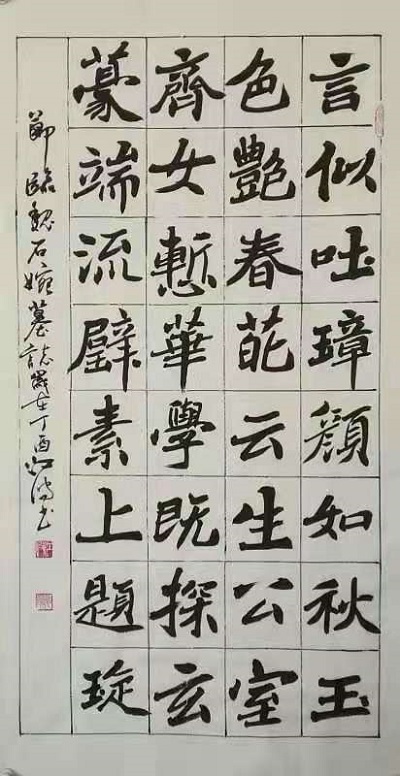 言似吐璋顏如秋玉
色艷春葩云生公室
齊女慙華學既探玄
豪端流璧素上題琁
節臨魏石婉墓誌歲在丁酉